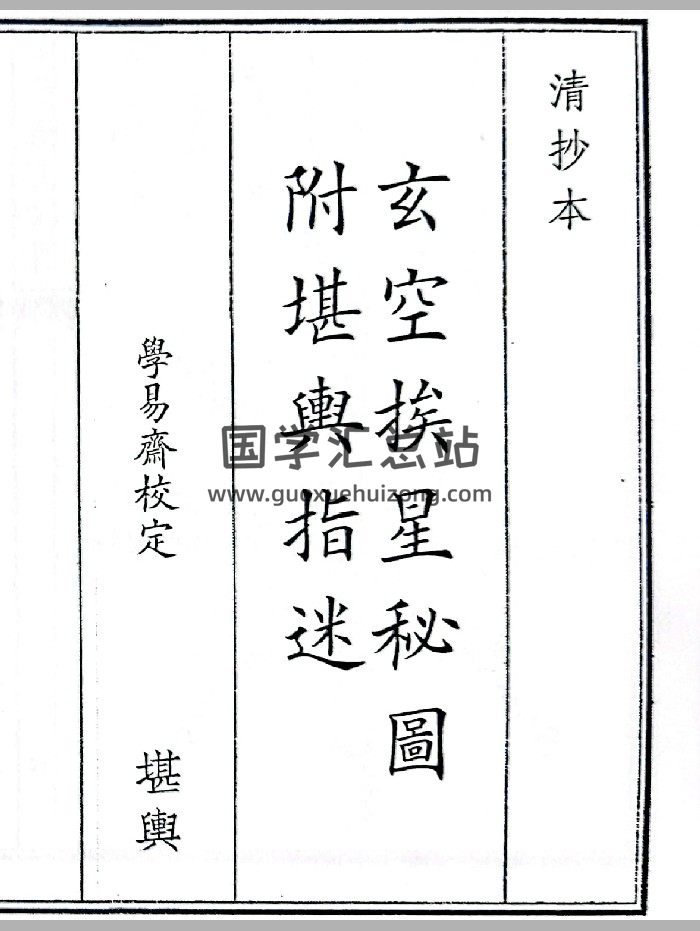 清抄本
玄空挨星秘圖
附堪輿指迷
學易齋校定
堪輿
国学汇总站
www.guoxuehuizong.com